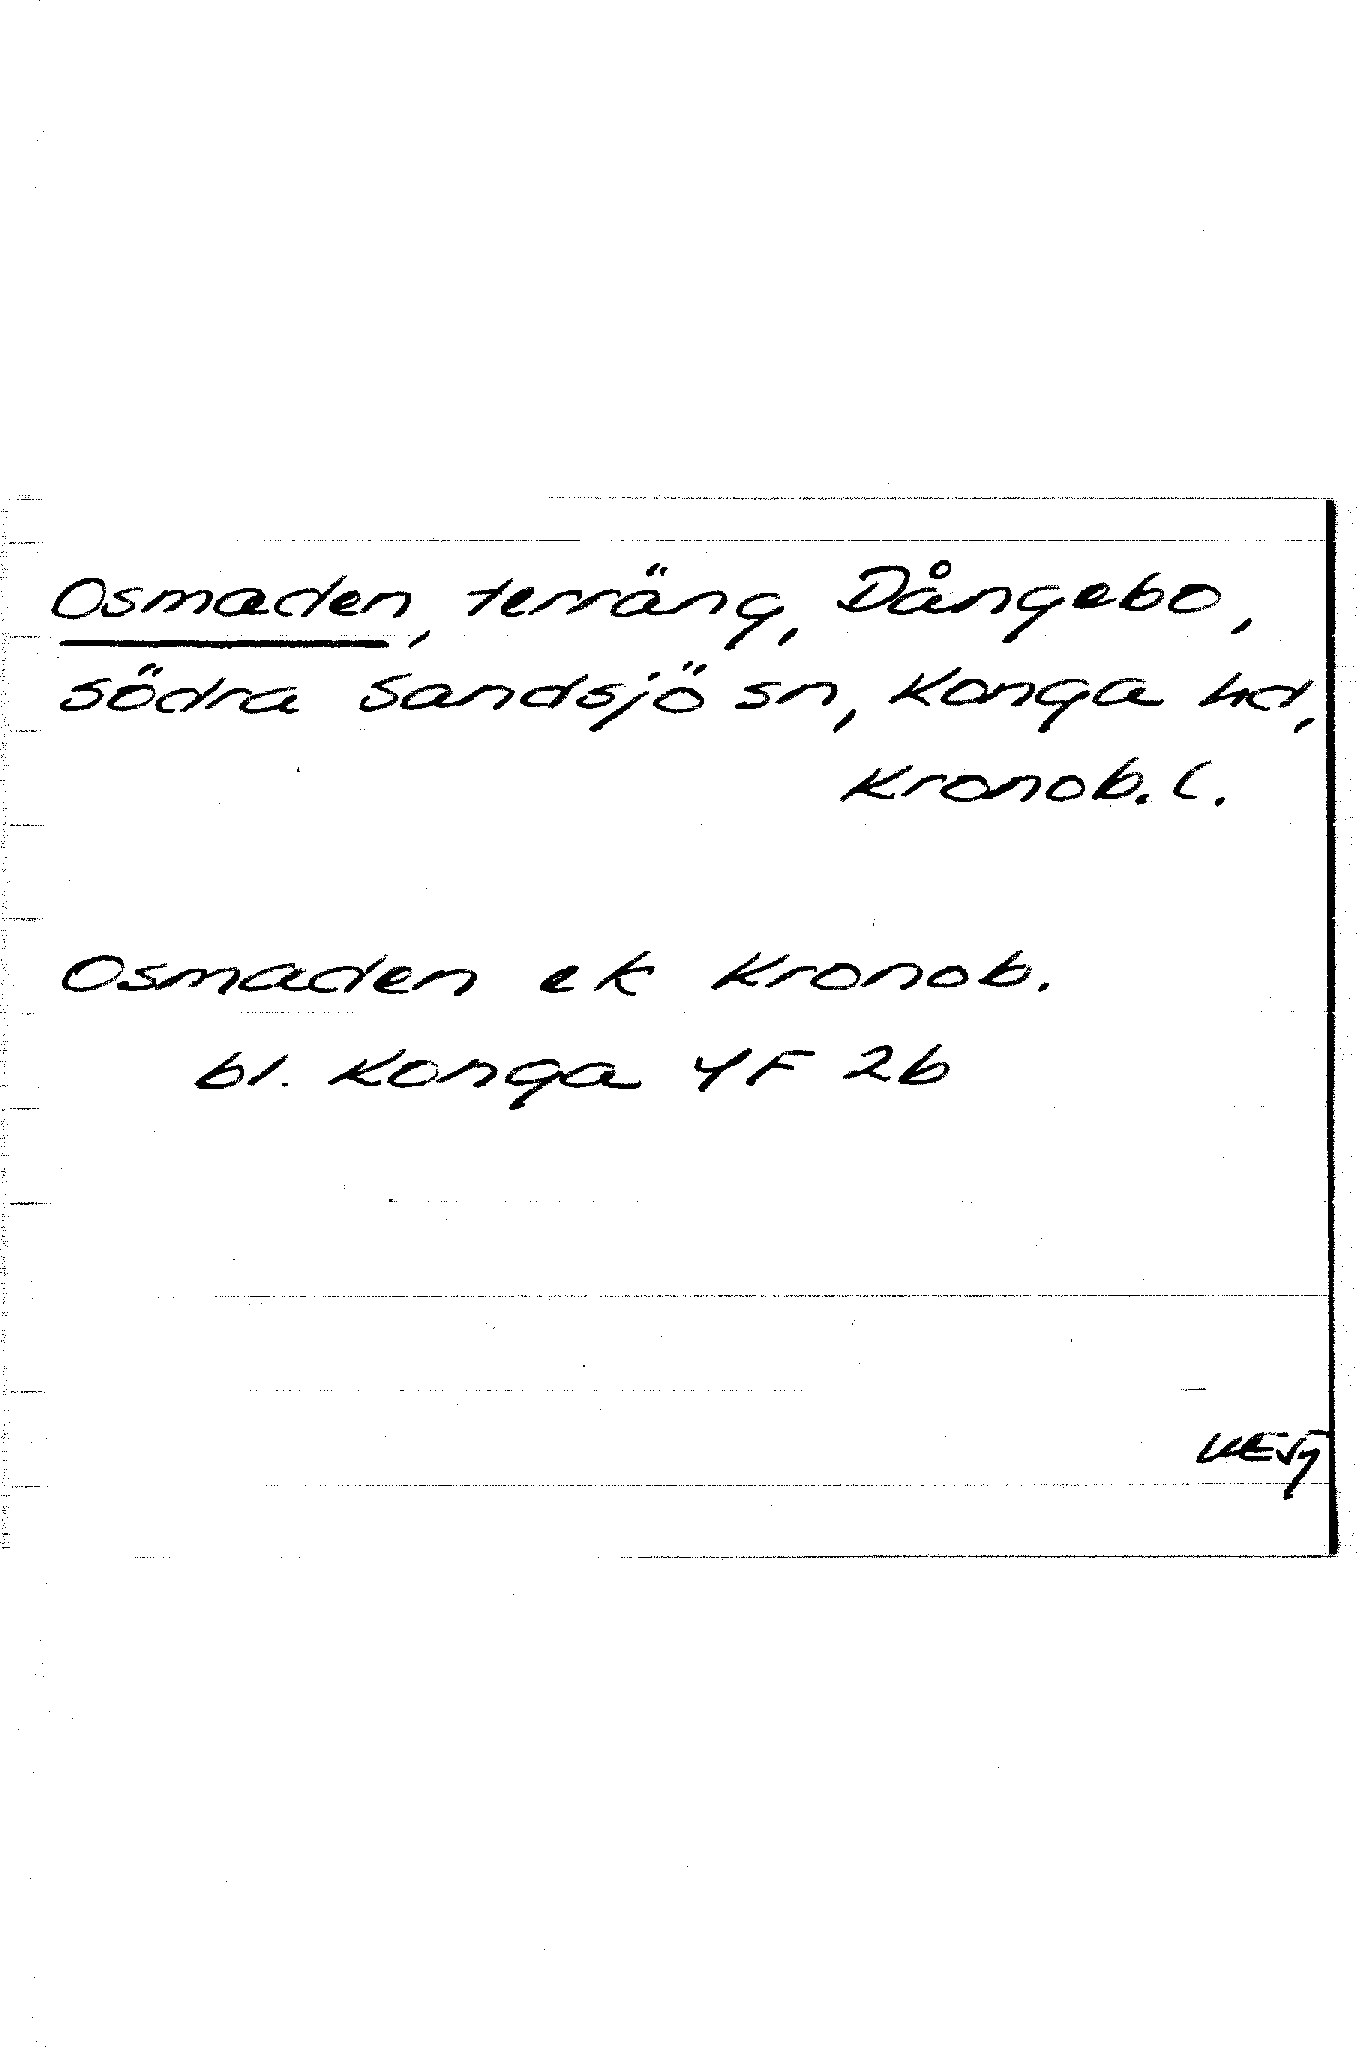 Osmaden, terräng, Dångebo,
södra Sandsjö sn, Konga hd,
Kronob. l.
Osmaden ek Kronob.
bl. Konga 4F 2b